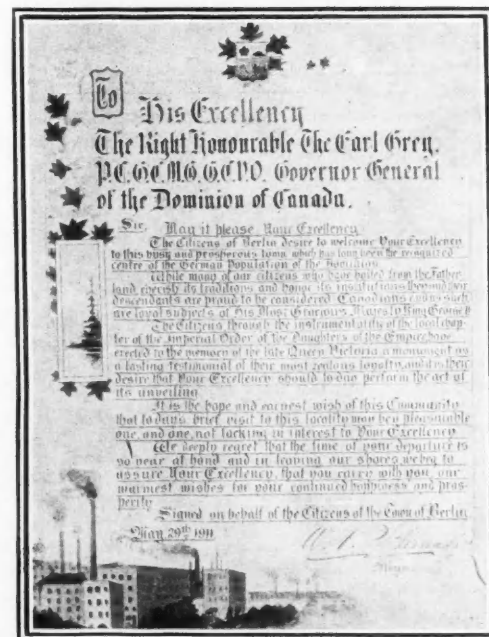 To
His Excellency
The Right Honourable The Earl Grey.
P.C. G.C.M.G. G.C.V.O. Governor General
of the Dominion of Canada.
Sir, May it please Your Excellency
The Citizens of Berlin desire to welcome Your Excellency
to this busy and prosperous town, which has long been the recognized
centre of the German Population of the Dominion
While many of our citizens who have hailed from the Father-
land cherish its traditions and honor its institutions they and their
descendants are proud to be considered Canadians and as such
are loyal subjects of His Most Gracious Majesty King George V
The Citizens through the instrumentality of the local chap-
ter of the Imperial Order of the Daughters of the Empire have
erected to the memory of the late Queen Victoria a monument as
a lasting testimonial of their most zealous loyalty, and it is their
desire that Your Excellency should to-day perform the act of
its unveiling
It is the hope and earnest wish of this Community
that to-days brief visit to this locality may be a pleasurable
one, and one, not lacking in interest to Your Excellency
We deeply regret that the time of your departure is
so near at hand and in leaving our shores we beg to
assure Your Excellency, that you carry with you, our
warmest wishes for your continued happiness and pros-
perity
Signed on behalf of the Citizens of the Town of Berlin
May 29th 1911
Mayor